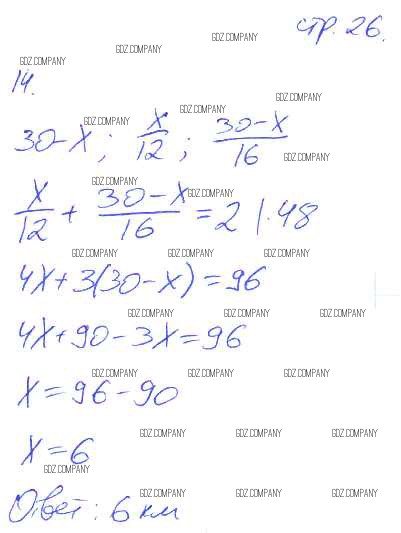 стр. 26.
GDZ.COMPANY
GDZ.COMPANY
GDZ.COMPANY
14.
GDZ.COMPANY
GDZ.COMPANY
GDZ.COMPANY
30-x; x/12; (30-x)/16
GDZ.COMPANY
GDZ.COMPANY
GDZ.COMPANY
x/12 + (30-x)/16 = 2 |·48
GDZ.COMPANY GDZ.COMPANY GDZ.COMPANY
4x+3(30-x)=96
GDZ.COMPANY GDZ.COMPANY GDZ.COMPANY
4x+90-3x=96
GDZ.COMPANY GDZ.COMPANY GDZ.COMPANY
x=96-90
GDZ.COMPANY GDZ.COMPANY GDZ.COMPANY
x=6
GDZ.COMPANY
GDZ.COMPANY GDZ.COMPANY GDZ.COMPANY
Ответ: 6 км